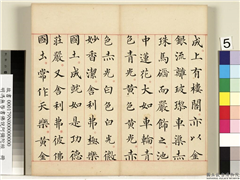 成上有樓閣亦以金
銀流離玻瓈車渠赤
珠碼碯而嚴飾之池
中蓮花大如車輪青
色青光黃色黃光赤
色赤光白色白光微
妙香潔舍利弗極樂
國土成就如是功德
莊嚴又舍利弗彼佛
國土常作天樂黃金
5